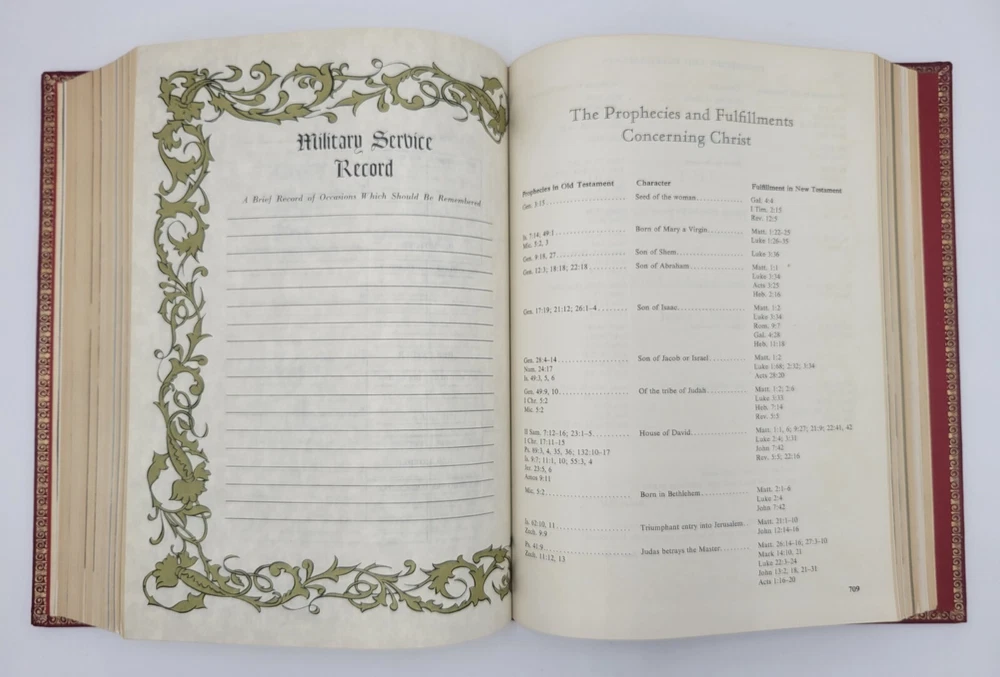 Military Service
Record
A Brief Record of Occasions Which Should Be Remembered
The Prophecies and Fulfillments
Concerning Christ
Prophecies in Old Testament Character Fulfillment in New Testament
Gen. 3:15 Seed of the woman Gal. 4:4
I Tim. 2:15
Rev. 12:5
Is. 7:14; 49:1 Born of Mary a Virgin Matt. 1:22-25
Mic. 5:2, 3 Luke 1:26-35
Gen. 9:18, 27 Son of Shem Luke 3:36
Gen. 12:3; 18:18; 22:18 Son of Abraham Matt. 1:1
Luke 3:34
Acts 3:25
Heb. 2:16
Gen. 17:19; 21:12; 26:1-4 Son of Isaac Matt. 1:2
Luke 3:34
Rom. 9:7
Gal. 4:28
Heb. 11:18
Gen. 28:4-14 Son of Jacob or Israel Matt. 1:2
Num. 24:17 Luke 1:68; 2:32; 3:34
Is. 49:3, 5, 6 Acts 28:20
Gen. 49:9, 10 Of the tribe of Judah Matt. 1:2; 2:6
I Chr. 5:2 Luke 3:33
Mic. 5:2 Heb. 7:14
Rev. 5:5
II Sam. 7:12-16; 23:1-5 House of David Matt. 1:1, 6; 9:27; 21:9; 22:41, 42
I Chr. 17:11-15 Luke 2:4; 3:31
Ps. 89:3, 4, 35, 36; 132:10-17 John 7:42
Is. 9:7; 11:1, 10; 55:3, 4 Rev. 5:5; 22:16
Jer. 23:5, 6
Amos 9:11
Mic. 5:2 Born in Bethlehem Matt. 2:1-6
Luke 2:4
John 7:42
Is. 62:10, 11 Triumphant entry into Jerusalem Matt. 21:1-10
Zech. 9:9 John 12:14-16
Ps. 41:9 Judas betrays the Master Matt. 26:14-16; 27:3-10
Zech. 11:12, 13 Mark 14:10, 21
Luke 22:3-24
John 13:2, 18, 21-31
Acts 1:16-20
709